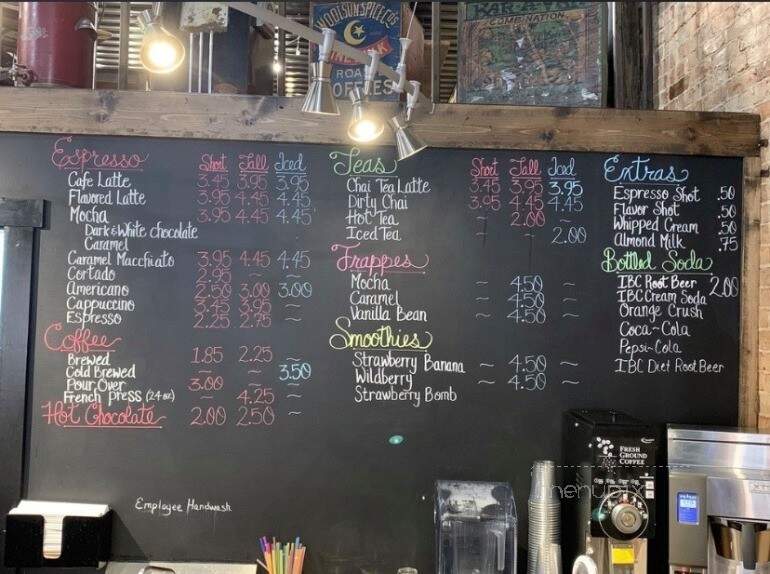 WOOLSON SPICE CO'S
ROAST
COFFEES
KAR-A-VAN
COMBINATION
Espresso Short Tall Iced
Cafe Latte 3.45 3.95 3.95
Flavored Latte 3.95 4.45 4.45
Mocha 3.95 4.45 4.45
Dark & White chocolate
Caramel
Caramel Macchiato 3.95 4.45 4.45
Cortado 2.95 ~ ~
Americano 2.50 3.00 3.00
Cappuccino 3.45 3.95 ~
Espresso 2.25 2.75 ~
Coffee
Brewed 1.85 2.25 ~
Cold Brewed ~ ~ 3.50
Pour Over 3.00 ~ ~
French press (24oz) ~ 4.25 ~
Hot Chocolate 2.00 2.50 ~
Teas Short Tall Iced
Chai Tea Latte 3.45 3.95 3.95
Dirty Chai 3.95 4.45 4.45
Hot Tea ~ 2.00 ~
Iced Tea ~ ~ 2.00
Frappes
Mocha ~ 4.50 ~
Caramel ~ 4.50 ~
Vanilla Bean ~ 4.50 ~
Smoothies
Strawberry Banana ~ 4.50 ~
Wildberry ~ 4.50 ~
Strawberry Bomb
Extras
Espresso Shot .50
Flavor Shot .50
Whipped Cream .50
Almond Milk .75
Bottled Soda
IBC Root Beer 2.00
IBC Cream Soda
Orange Crush
Coca~Cola
Pepsi~Cola
IBC Diet Root Beer
Employee Handwash
FRESH
GROUND
COFFEE
menupix